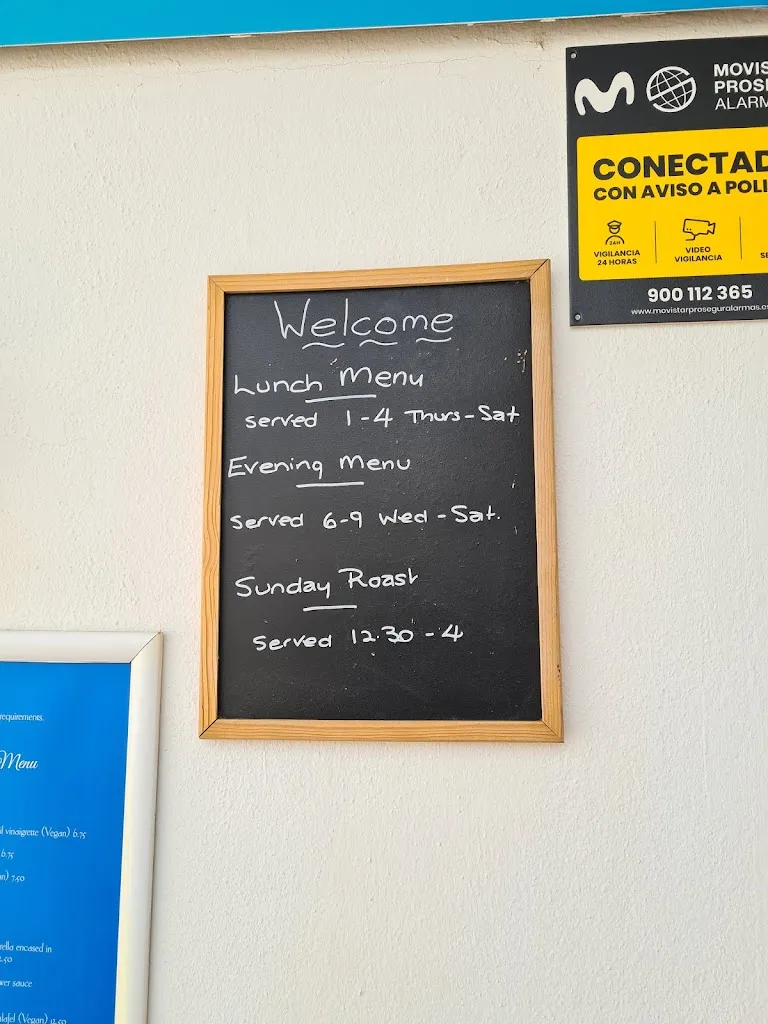 Welcome
Lunch Menu
Served 1-4 Thurs-Sat
Evening Menu
Served 6-9 Wed-Sat.
Sunday Roast
Served 12.30-4
MOVIS
PROSE
ALARM
CONECTAD
CON AVISO A POLI
24H
VIGILANCIA
24 HORAS
VIDEO
VIGILANCIA
SE
900 112 365
www.movistarproseguralarmas.es
requirements.
Menu
vinaigrette (Vegan) 6.75
6.75
7.50
encased in
.50
sauce
(Vegan) 12.50